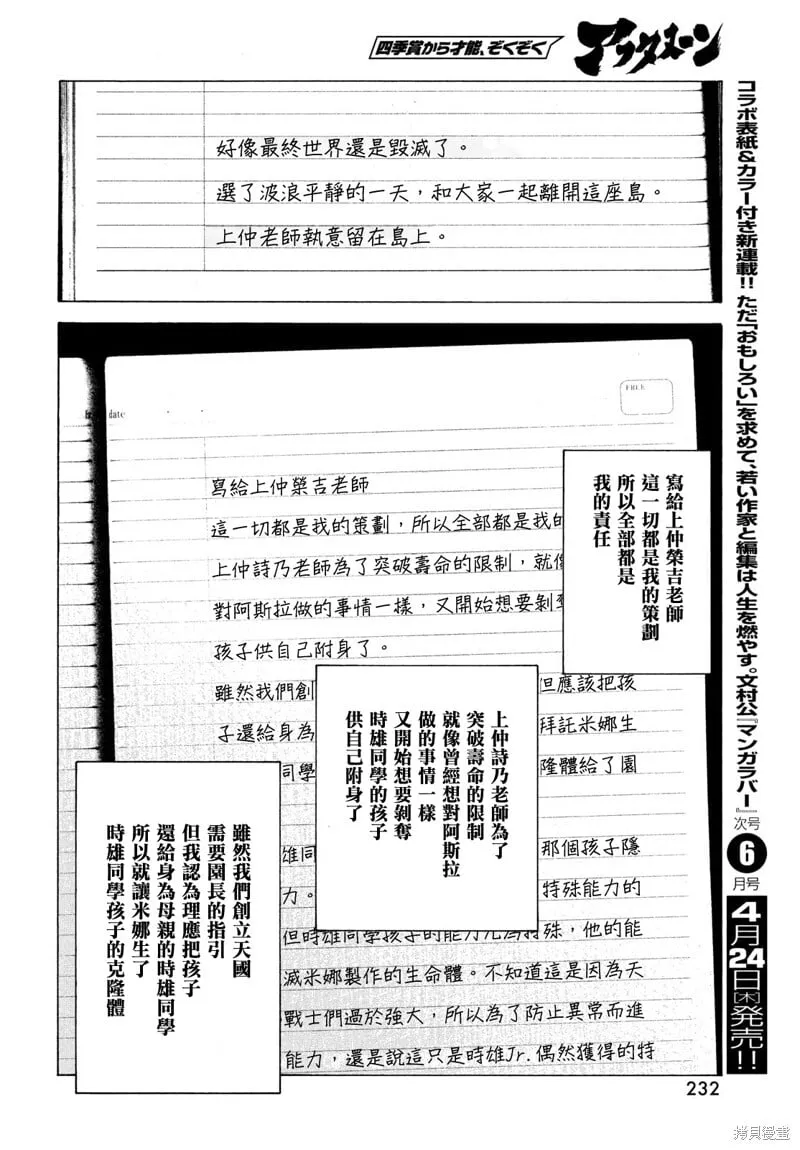 四季賞から才能、ぞくぞく
アフタヌーン
コラボ表紙&カラー付き新連載!! ただ「おもしろい」を求めて、若い作家と編集は人生を燃やす。文村公『マンガラバー』次号6月号4月24日(木)発売!!
好像最終世界還是毀滅了。
選了波浪平靜的一天，和大家一起離開這座島。
上仲老師執意留在島上。
date
FREE
寫給上仲榮吉老師
這一切都是我的策劃，所以全部都是我的
上仲詩乃老師為了突破壽命的限制，就像
對阿斯拉做的事情一樣，又開始想要剝奪
孩子供自己附身了。
雖然我們創
但應該把孩
子還給身為
拜託米娜生
同學
隆體給了園
雄同
那個孩子隱
力。
特殊能力的
但時雄同學孩子的能力尤為特殊，他的能
滅米娜製作的生命體。不知道這是因為天
戰士們過於強大，所以為了防止異常而進
能力，還是說這只是時雄Jr.偶然獲得的特
寫給上仲榮吉老師
這一切都是我的策劃
所以全部都是
我的責任
上仲詩乃老師為了
突破壽命的限制
就像曾經想對阿斯拉
做的事情一樣
又開始想要剝奪
時雄同學的孩子
供自己附身了
雖然我們創立天國
需要園長的指引
但我認為理應把孩子
還給身為母親的時雄同學
所以就讓米娜生了
時雄同學孩子的克隆體
232
拷貝漫畫